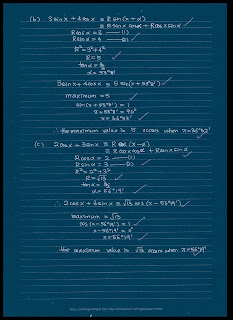 (b) 3sinx + 4cosx ≡ R sin(x+α)
≡ R sinx cosα + R cosx sinα
R cosα = 3 — (1)
R sinα = 4 — (2)
R² = 3² + 4²
R = 5
tanα = 4/3
α = 53°8'
3sinx + 4cosx ≡ 5 sin(x + 53°8')
maximum = 5
sin(x + 53°8') = 1
x + 53°8' = 90°
x = 36°52'
∴ the maximum value is 5 occurs when x = 36°52'
(c) 2cosx + 3sinx ≡ R cos(x-α)
≡ R cosx cosα + R sinx sinα
R cosα = 2 — (1)
R sinα = 3 — (2)
R² = 2² + 3²
R = √13
tanα = 3/2
α = 56°19'
∴ 2cosx + 3sinx ≡ √13 cos(x - 56°19')
maximum = √13
cos(x - 56°19') = 1
x - 56°19' = 0°
x = 56°19'
the maximum value is √13 occurs when x = 56°19'